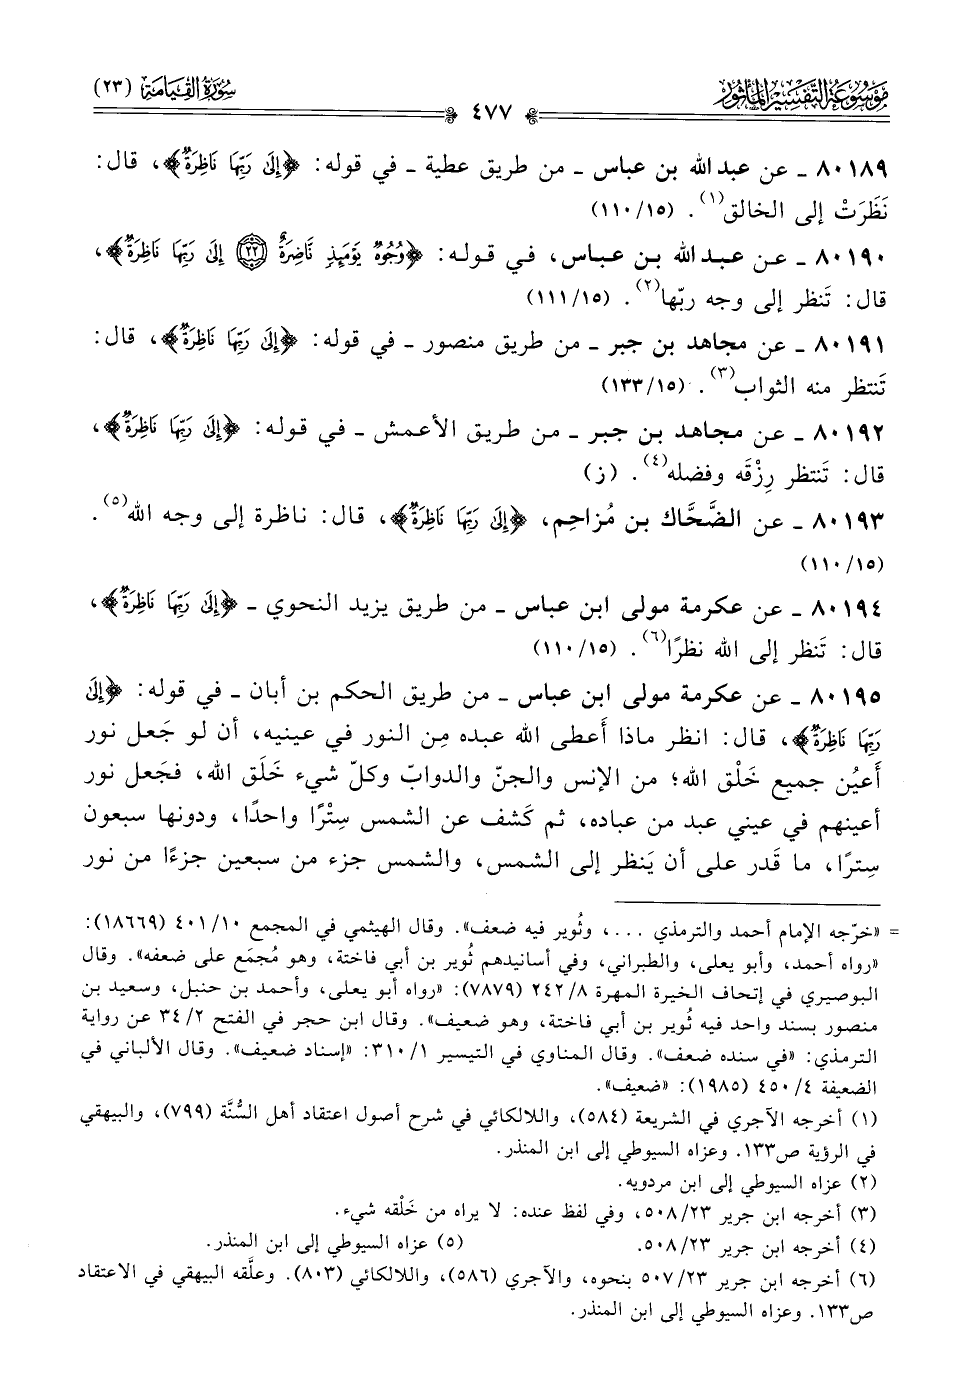 موسوعة التفسير المأثور
سورة القيامة (٢٣)
٤٧٧
٨٠١٨٩ ـ عن عبد الله بن عباس ـ من طريق عطية ـ في قوله: ﴿إِلَىٰ رَبِّهَا نَاظِرَةٌ﴾، قال:
نَظَرَتْ إلى الخالق(١). (١١٠/١٥)
٨٠١٩٠ ـ عن عبد الله بن عباس، في قوله: ﴿وُجُوهٌ يَوْمَئِذٍ نَّاضِرَةٌ ٢٢ إِلَىٰ رَبِّهَا نَاظِرَةٌ﴾،
قال: تَنظر إلى وجه ربّها(٢). (١١١/١٥)
٨٠١٩١ ـ عن مجاهد بن جبر ـ من طريق منصور ـ في قوله: ﴿إِلَىٰ رَبِّهَا نَاظِرَةٌ﴾، قال:
تَنتظر منه الثواب(٣). (١٣٣/١٥)
٨٠١٩٢ ـ عن مجاهد بن جبر ـ من طريق الأعمش ـ في قوله: ﴿إِلَىٰ رَبِّهَا نَاظِرَةٌ﴾،
قال: تَنتظر رِزْقَه وفضله(٤). (ز)
٨٠١٩٣ ـ عن الضَّحَّاك بن مُزاحِم، ﴿إِلَىٰ رَبِّهَا نَاظِرَةٌ﴾، قال: ناظرة إلى وجه الله(٥).
(١١٠/١٥)
٨٠١٩٤ ـ عن عكرمة مولى ابن عباس ـ من طريق يزيد النحوي ـ ﴿إِلَىٰ رَبِّهَا نَاظِرَةٌ﴾،
قال: تَنظر إلى الله نظرًا(٦). (١١٠/١٥)
٨٠١٩٥ ـ عن عكرمة مولى ابن عباس ـ من طريق الحكم بن أبان ـ في قوله: ﴿إِلَىٰ
رَبِّهَا نَاظِرَةٌ﴾، قال: انظر ماذا أَعطى الله عبده مِن النور في عينيه، أن لو جَعل نور
أَعيُن جميع خَلْق الله؛ من الإنس والجنّ والدوابّ وكلّ شيء خَلَق الله، فجَعل نور
أعينهم في عيني عبد من عباده، ثم كَشف عن الشمس سِتْرًا واحدًا، ودونها سبعون
سِترًا، ما قَدر على أن يَنظر إلى الشمس، والشمس جزء من سبعين جزءًا من نور
= «خرّجه الإمام أحمد والترمذي ...، وثُوير فيه ضعف». وقال الهيثمي في المجمع ٤٠١/١٠ (١٨٦٦٩):
«رواه أحمد، وأبو يعلى، والطبراني، وفي أسانيدهم ثُوير بن أبي فاختة، وهو مُجمَع على ضعفه». وقال
البوصيري في إتحاف الخيرة المهرة ٢٤٢/٨ (٧٨٧٩): «رواه أبو يعلى، وأحمد بن حنبل، وسعيد بن
منصور بسند واحد فيه ثُوير بن أبي فاختة، وهو ضعيف». وقال ابن حجر في الفتح ٣٤/٢ عن رواية
الترمذي: «في سنده ضعف». وقال المناوي في التيسير ٣١٠/١: «إسناد ضعيف». وقال الألباني في
الضعيفة ٤٥٠/٤ (١٩٨٥): «ضعيف».
(١) أخرجه الآجري في الشريعة (٥٨٤)، واللالكائي في شرح أصول اعتقاد أهل السُّنَّة (٧٩٩)، والبيهقي
في الرؤية ص١٣٣. وعزاه السيوطي إلى ابن المنذر.
(٢) عزاه السيوطي إلى ابن مردويه.
(٣) أخرجه ابن جرير ٥٠٨/٢٣، وفي لفظ عنده: لا يراه من خَلْقه شيء.
(٤) أخرجه ابن جرير ٥٠٨/٢٣. (٥) عزاه السيوطي إلى ابن المنذر.
(٦) أخرجه ابن جرير ٥٠٧/٢٣ بنحوه، والآجري (٥٨٦)، واللالكائي (٨٠٣). وعلَّقه البيهقي في الاعتقاد
ص١٣٣. وعزاه السيوطي إلى ابن المنذر.